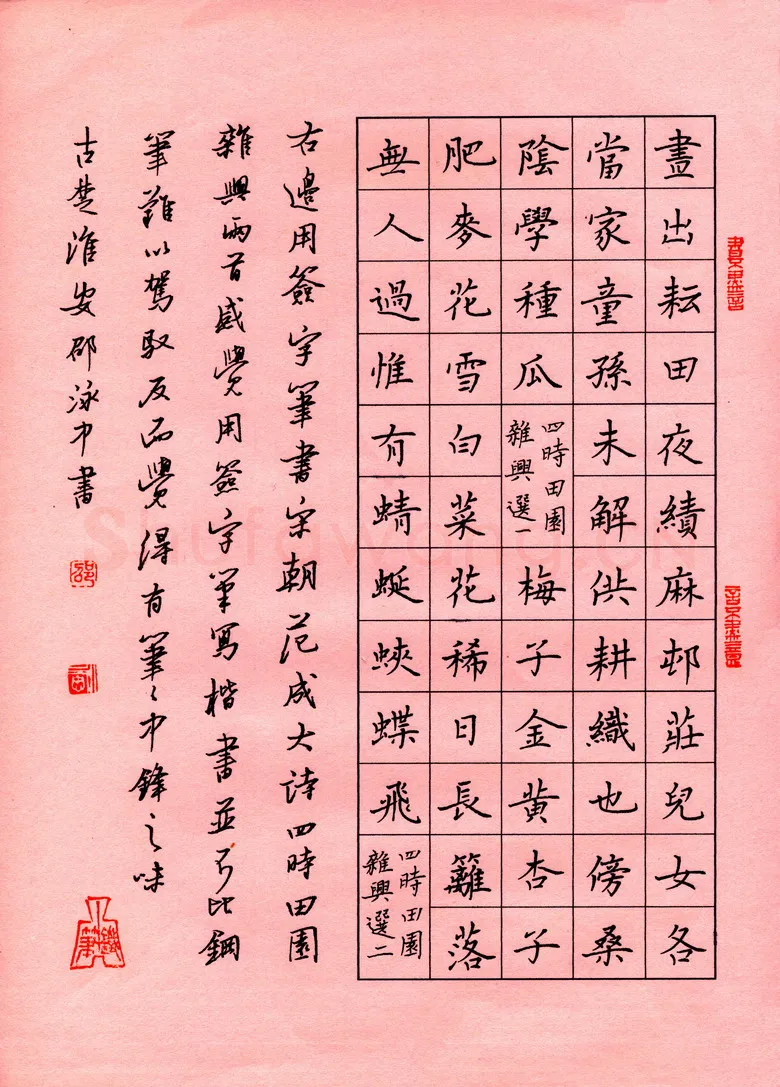 晝出耘田夜績麻邨莊兒女各
當家童孫未解供耕織也傍桑
陰學種瓜
四時田園
雜興選一
梅子金黃杏子
肥麥花雪白菜花稀日長籬落
無人過惟有蜻蜓蛺蝶飛
四時田園
雜興選二
右邊用簽字筆書宋朝范成大詩四時田園
雜興兩首感覺用簽字筆寫楷書並不比鋼
筆難以駕馭反而覺得有筆〻中鋒之味
古楚淮安邵泳中書
Shufawang.cn